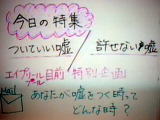 今日の特集
ついていい嘘／許せない嘘
エイプリルフール目前 特別企画
Mail
あなたが嘘をつく時って
どんな時？